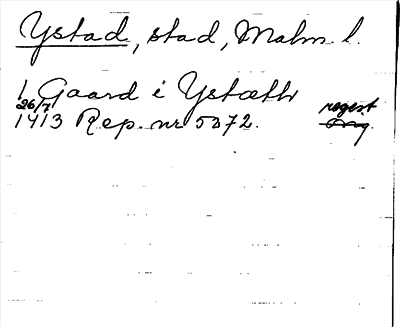 Ystad, stad, Malm. l.
1 Gaard i Ystæth
26/7 regest
1413 Rep. nr 5072. Orig.